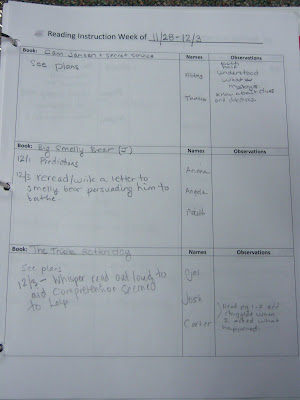 Reading Instruction Week of 11/28-12/3
Book: Cam Jansen + Secret Service
Names
Observations
See plans
both
understood
what
makes
know about clues
are
Book: Big Smelly Bear (J)
Names
Observations
12/1 Predictions
12/2 reread/write a letter to
smelly bear persuading him to
bathe
Ariana
Angela
Book: The Triple Rotten Day
Names
Observations
See plans
12/3 - Whisper read out loud to
aid comprehension seemed
to help
Josh
Carter
Read pg 1-2 and
struggled when
I asked what
happened.